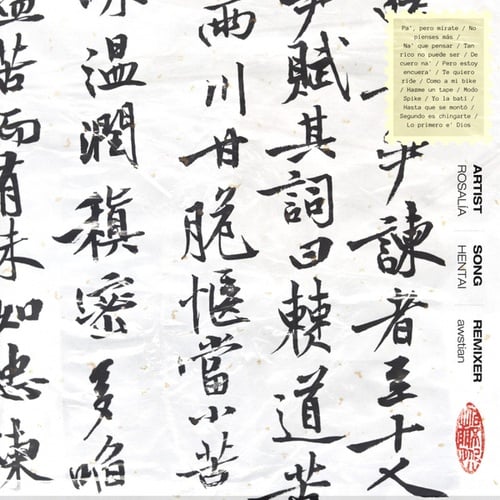 Pa', pero mírate / No
pienses más /
Na' que pensar / Tan
rico no puede ser / De
cuero na' / Pero estoy
encuera' / Te quiero
ride / Como a mi bike
/ Hazme un tape / Modo
Spike / Yo la batí /
Hasta que se montó /
Segundo es chingarte /
Lo primero e' Dios
ARTIST
ROSALÍA
SONG
HENTAI
REMIXER
awstian
笋諫者至十人
笋賦其詞曰僰道苦
兩川甘脆愜當小苦
味溫潤稹密多啗
蓋苦而有味如忠諫